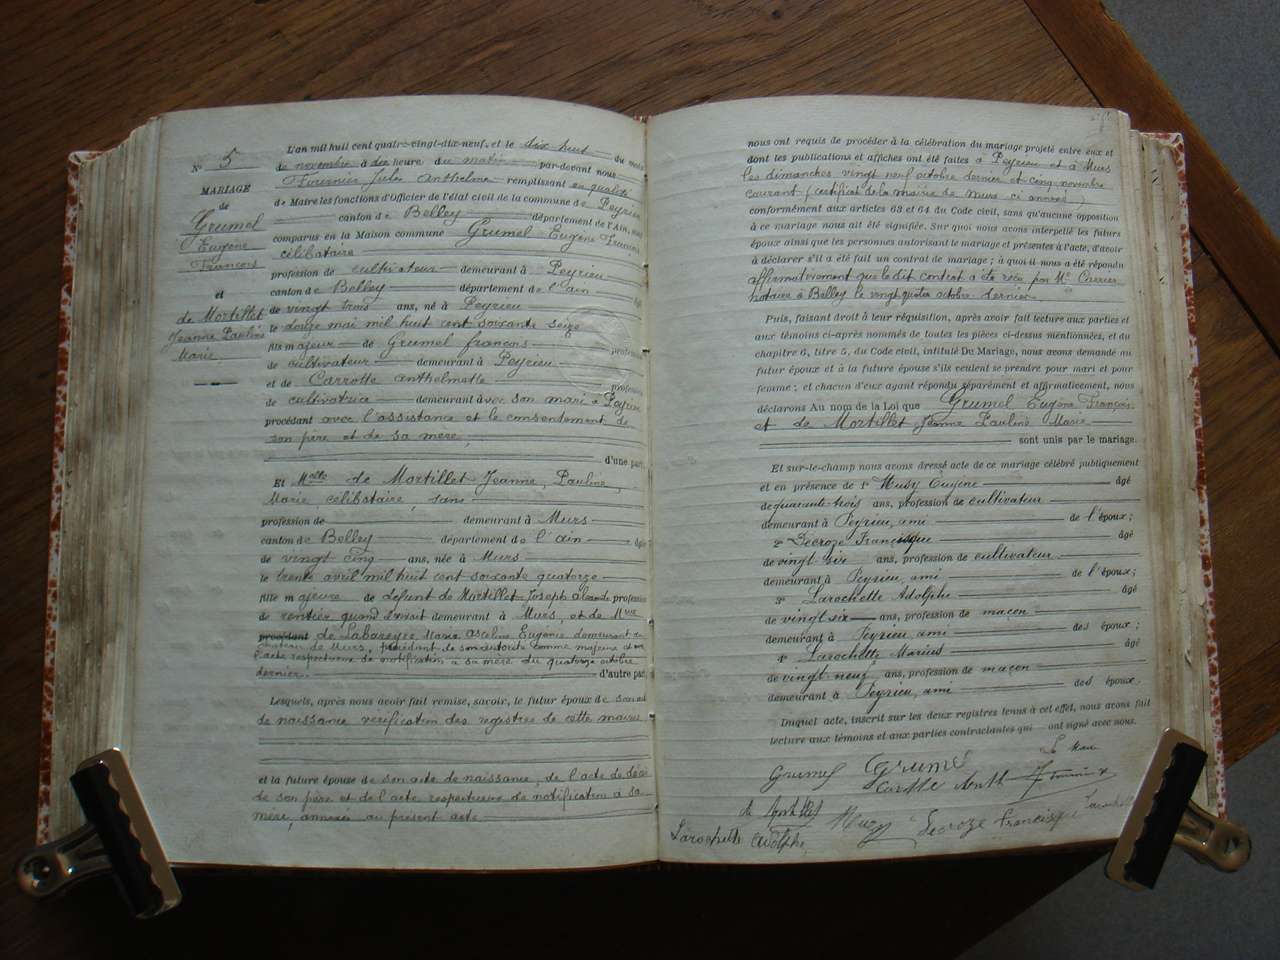 L'an mil huit cent quatre-vingt-dix-neuf, et le dix huit du mois
N° 5
de novembre à dix heure du matin par-devant nous
Fournier Jules Anthelme remplissant en qualité
MARIAGE
de Maire les fonctions d'Officier de l'état civil de la commune de Peyrieu
de
canton de Belley département de l'Ain, sont
Grumel
comparus en la Maison commune Grumel Eugène François
Eugène
célibataire
François
profession de cultivateur demeurant à Peyrieu
canton de Belley département de l'ain âgé
et
de vingt trois ans, né à Peyrieu
de Mortillet
le douze mai mil huit cent soixante seize
Jeanne Pauline
fils majeur de Grumel françois profession
Marie
de cultivateur demeurant à Peyrieu
et de Carrotte anthelmette profession
de cultivatrice demeurant avec son mari à Peyrieu
procédant avec l'assistance et le consentement de
son père et de sa mère,
d'une part;
Et Melle de Mortillet Jeanne, Pauline,
Marie célibataire, sans
profession de demeurant à Murs
canton de Belley département de l'ain âgée
de vingt cinq ans, née à Murs
le trente avril mil huit cent soixante quatorze
fille majeure de defunt de Mortillet Joseph profession
de rentier quand vivait demeurant à Murs, et de Mme
procédant de Labareyre Marie Eugénie demeurant au
château de Murs, procédant de son autorité comme majeure et
l'acte respectueux de notification à sa mère du quatorze octobre
dernier. d'autre part
Lesquels, après nous avoir fait remise, savoir, le futur époux de son acte
de naissance vérification des registres de cette mairie
et la future épouse de son acte de naissance, de l'acte de décès
de son père et de l'acte respectueux de notification à sa
mère, annexés au présent acte
nous ont requis de procéder à la célébration du mariage projeté entre eux et
dont les publications et affiches ont été faites à Peyrieu et à Murs
les dimanches vingt neuf octobre dernier et cinq novembre
courant (certificat de la mairie de Murs ci annexé)
conformément aux articles 63 et 64 du Code civil, sans qu'aucune opposition
à ce mariage nous ait été signifiée. Sur quoi nous avons interpellé les futurs
époux ainsi que les personnes autorisant le mariage et présentes à l'acte, d'avoir
à déclarer s'il a été fait un contrat de mariage; à quoi il nous a été répondu
affirmativement que le dit contrat a été reçu par Me Carrier
notaire à Belley le vingt quatre octobre dernier
Puis, faisant droit à leur réquisition, après avoir fait lecture aux parties et
aux témoins ci-après nommés de toutes les pièces ci-dessus mentionnées, et du
chapitre 6, titre 5, du Code civil, intitulé Du Mariage, nous avons demandé au
futur époux et à la future épouse s'ils veulent se prendre pour mari et pour
femme; et chacun d'eux ayant répondu séparément et affirmativement, nous
déclarons Au nom de la Loi que Grumel Eugène François
et de Mortillet Jeanne Pauline Marie
sont unis par le mariage.
Et sur-le-champ nous avons dressé acte de ce mariage célébré publiquement
et en présence de 1° Musy Eugène âgé
de quarante trois ans, profession de cultivateur
demeurant à Peyrieu, ami de l'époux;
2° Decroze Francisque âgé
de vingt six ans, profession de cultivateur
demeurant à Peyrieu, ami de l'époux;
3° Larochette Adolphe âgé
de vingt six ans, profession de maçon
demeurant à Peyrieu, ami des époux;
4° Larochette Marius âgé
de vingt neuf ans, profession de maçon
demeurant à Peyrieu, ami des époux.
Duquel acte, inscrit sur les deux registres tenus à cet effet, nous avons fait
lecture aux témoins et aux parties contractantes qui ont signé avec nous.
Le Maire
Grumel Grumel
Carotte Anth Fournier
Musy Decroze francisque
Larochette adolphe